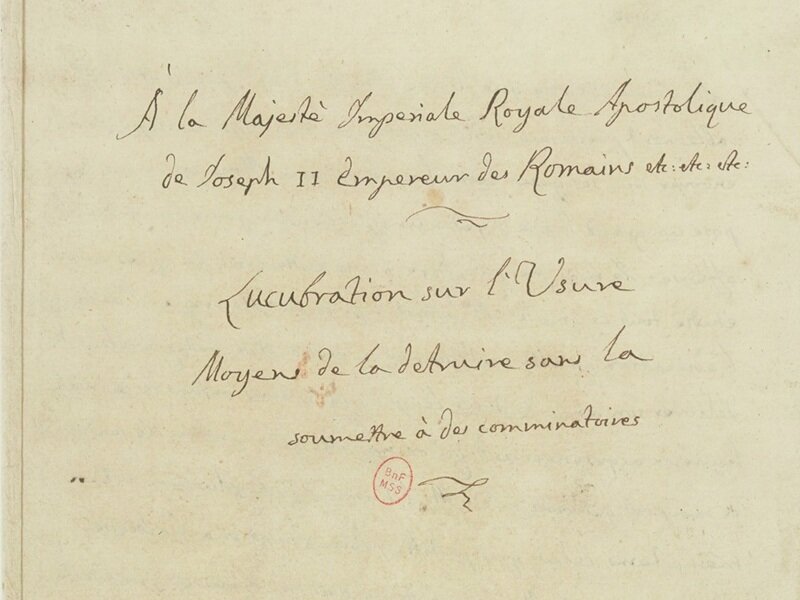 À la Majestè Imperiale Royale Apostolique
de Joseph II Empereur des Romains etc: etc: etc:
Lucubration sur l'Usure
Moyens de la detruire sans la
soumettre à des comminatoires
BnF
MSS